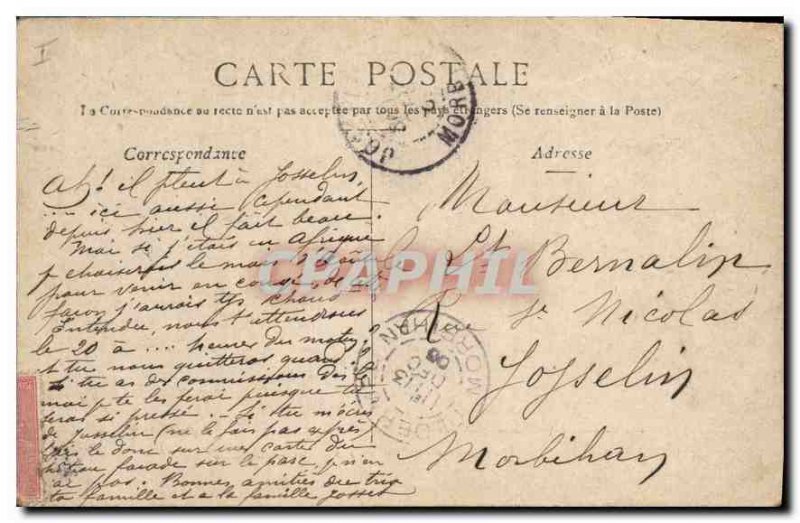 I
CARTE POSTALE
La Correspondance au recto n'est pas acceptée par tous les pays étrangers (Se renseigner à la Poste)
Correspondance
Adresse
JOS
MORB
Ah! il pleut à Josselin,
.... ici aussi cependant
depuis hier il fait beau.
Moi si j'étais en Afrique
je choiserais le mois d'août
pour venir en congé de
façon j'aurais tjs chaud
Entendu, nous t'attendrons
le 20 à .... heures du matin
et tu nous quitteras quand?
Si tu as des commissions
moi je te les ferai puisque tu
seras si pressé. Si tu m'écris
de Josselin (ne le fais pas exprès)
fais le donc sur une carte du
château façade sur le parc je n'en
ai pas. Bonnes amitiés de
ta famille et à la famille Josset
Monsieur
Lt Bernalin
Rue St Nicolas
Josselin
Morbihan
MORBIHAN
CPAPHIL